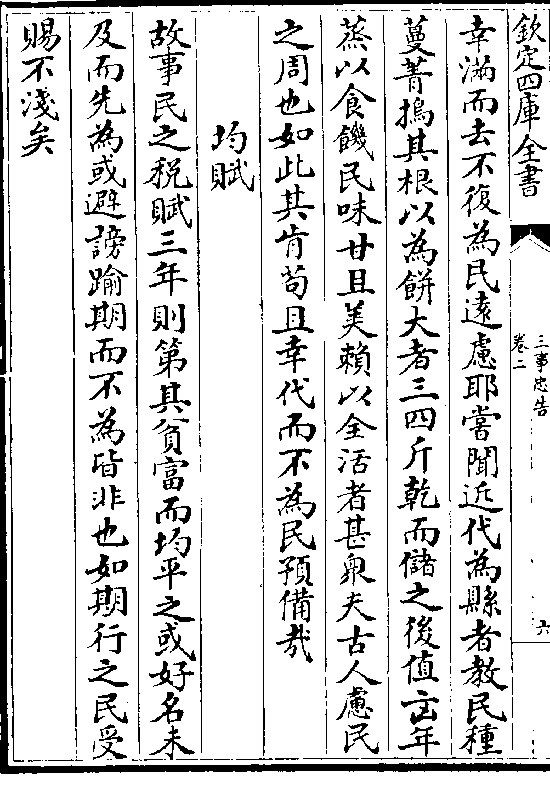 欽定四庫全書
三事忠告
卷二
六
幸滿而去不復為民遠慮耶嘗聞近代為縣者教民種
蔓菁搗其根以為餅大者三四斤乾而儲之後值㐫年
蒸以食饑民味甘且美賴以全活者甚衆夫古人慮民
之周也如此其肯苟且幸代而不為民預備哉
均賦
故事民之稅賦三年則第其貧富而均平之或好名未
及而先為或避謗踰期而不為皆非也如期行之民受
賜不淺矣